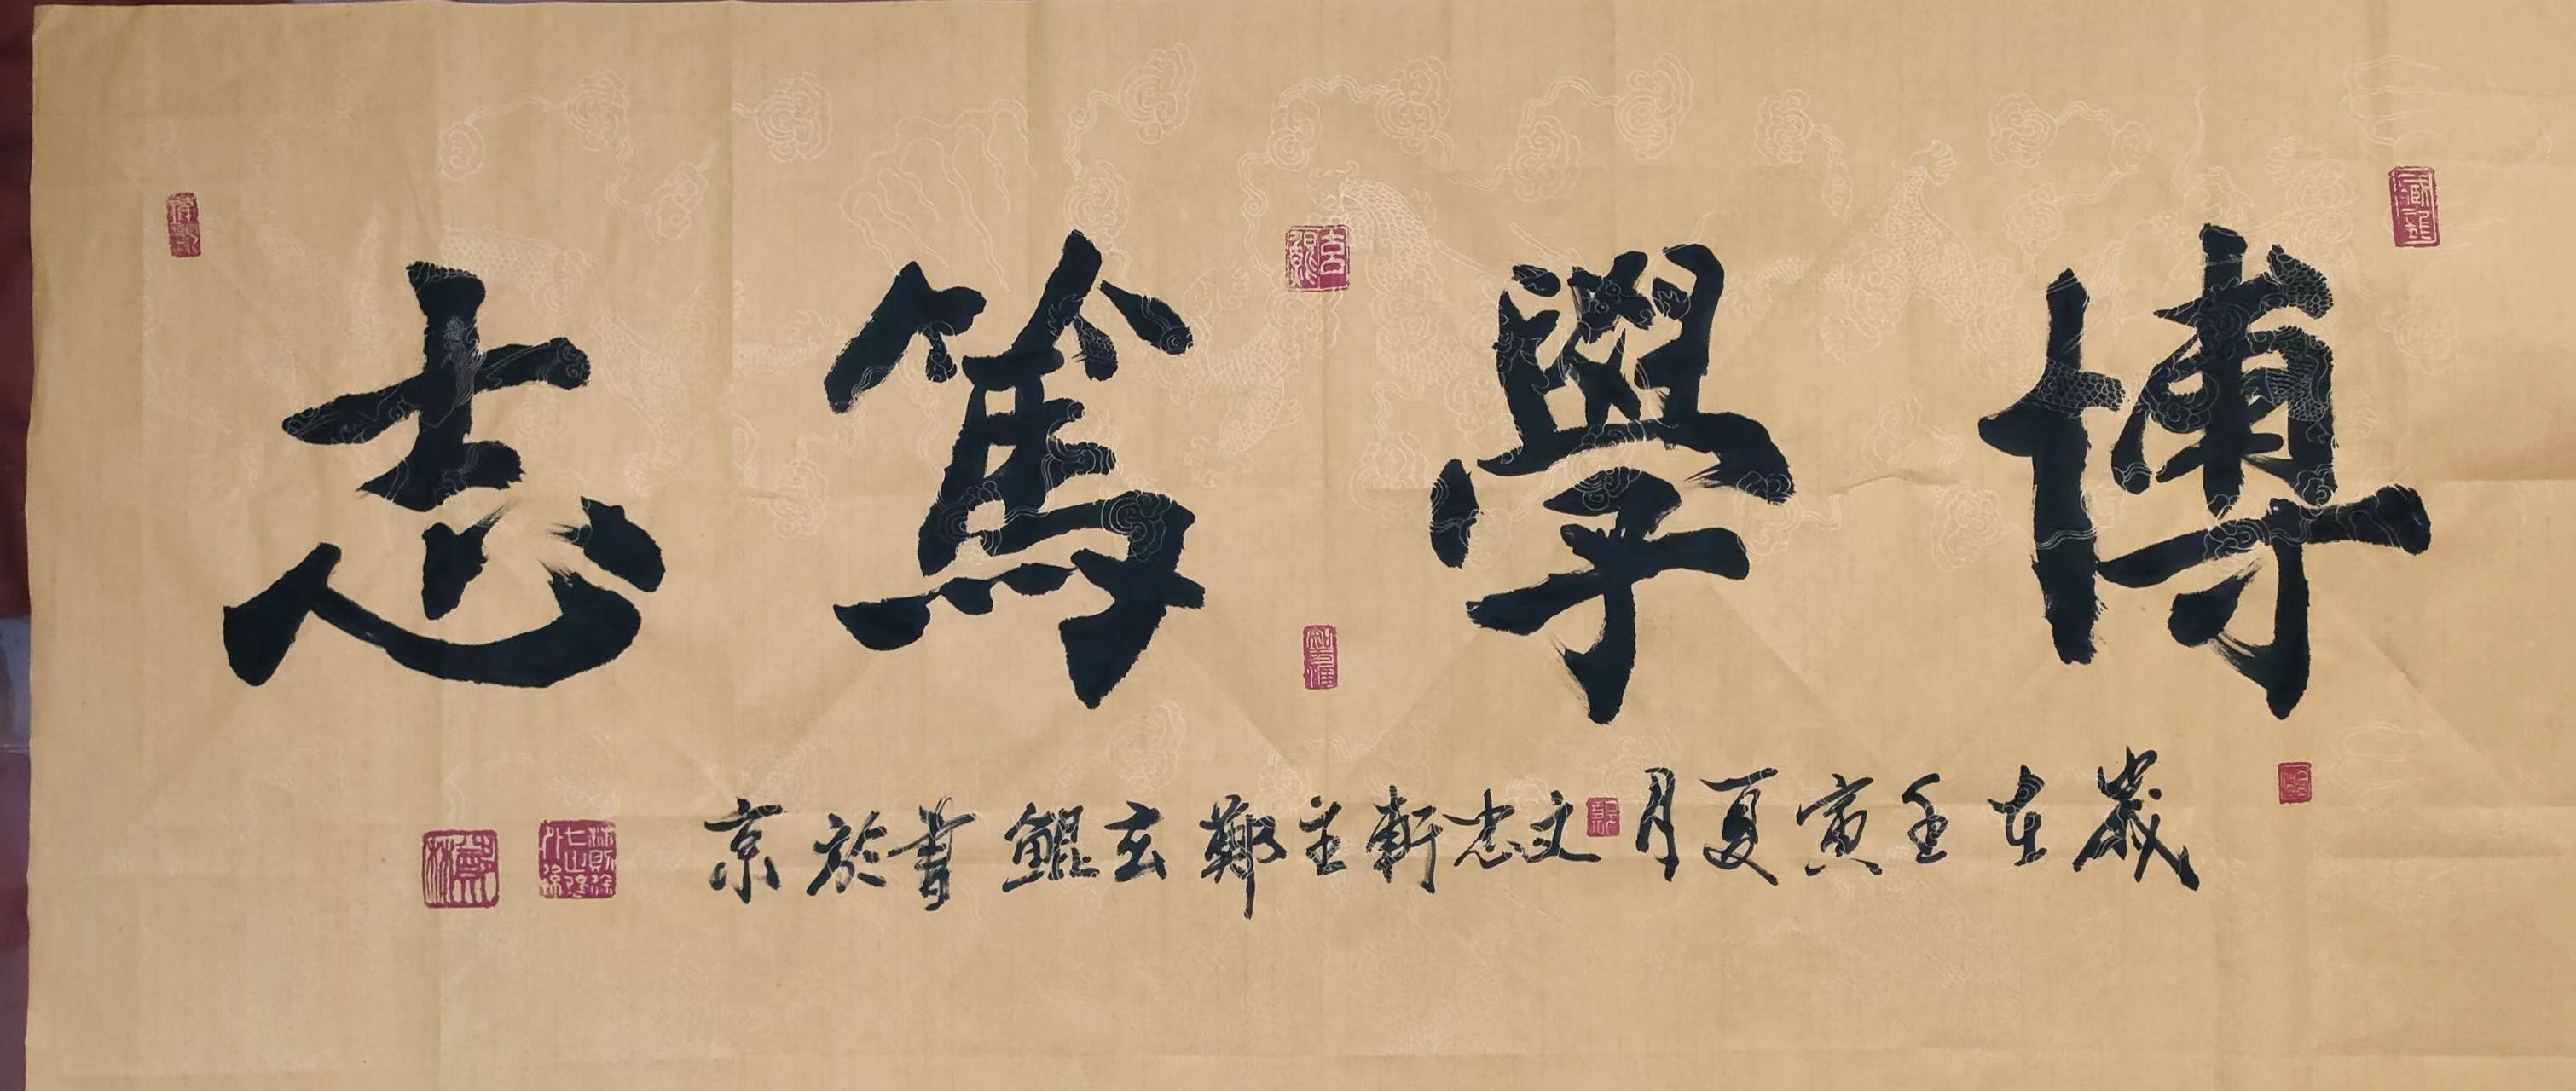 博學篤志
歲在壬寅夏月文忠軒主鄭玄鯤書於京